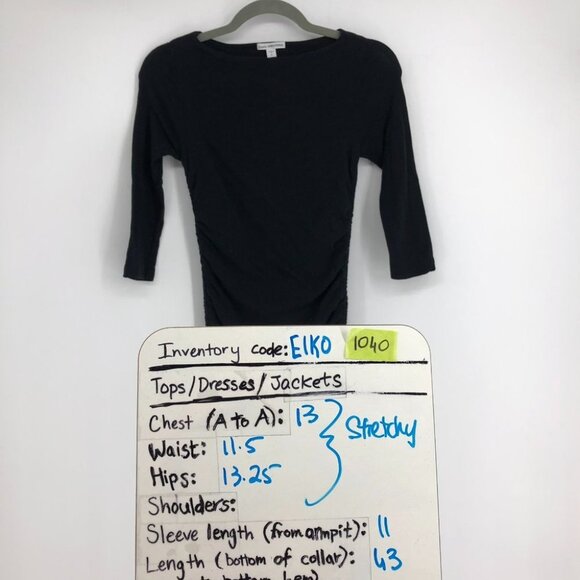 Inventory code: EIKO 1040
Tops/Dresses/Jackets
Chest (A to A): 13
Stretchy
Waist: 11.5
Hips: 13.25
Shoulders:
Sleeve length (from armpit): 11
Length (bottom of collar): 43
to bottom hem)